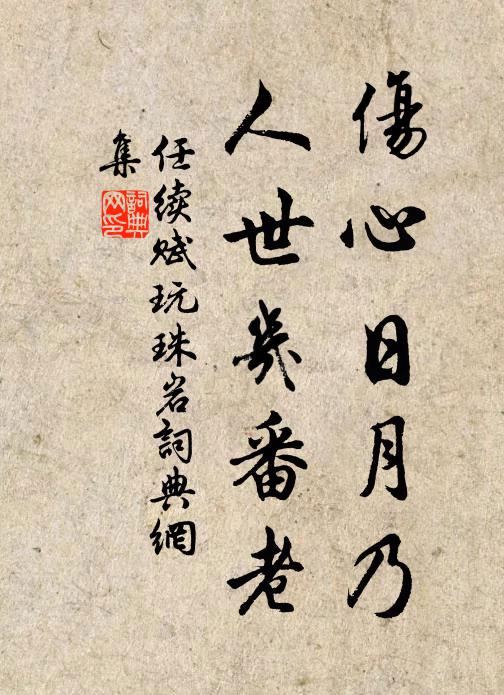 傷心日月乃
人世幾番老
任续赋玩珠岩詞典網
集
詞典網印